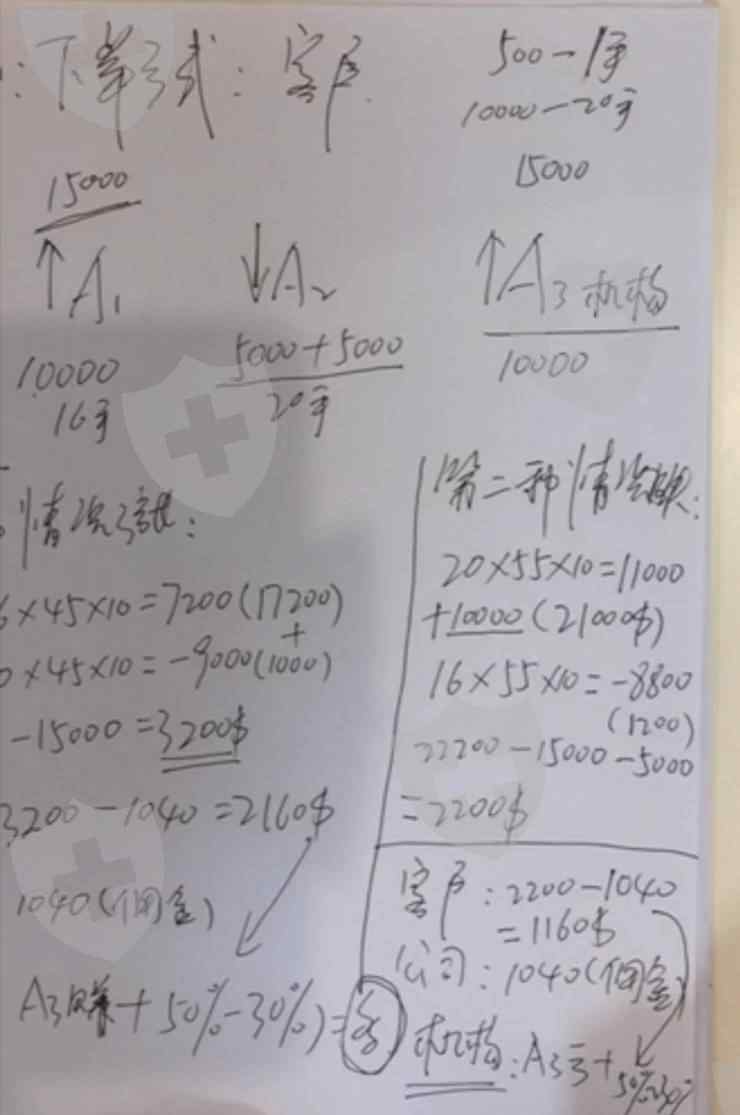 : 下单方式: 客户
500-1手
10000-20手
15000
15000
↑A₁
↓A₂
↑A₃ 机构
10000
5000+5000
10000
16手
20手
情况
第二种情况
×45×10=7200(17200)
+
×45×10=-9000(1000)
-15000=3200$
3200-1040=2160$
1040(佣金)
A₃赚+50%-30%)=
20×55×10=11000
+10000(21000$)
16×55×10=-8800
(1200)
22200-15000-5000
=2200$
客户:2200-1040
=1160$
公司:1040(佣金)
机构:A₃亏+50%-30%